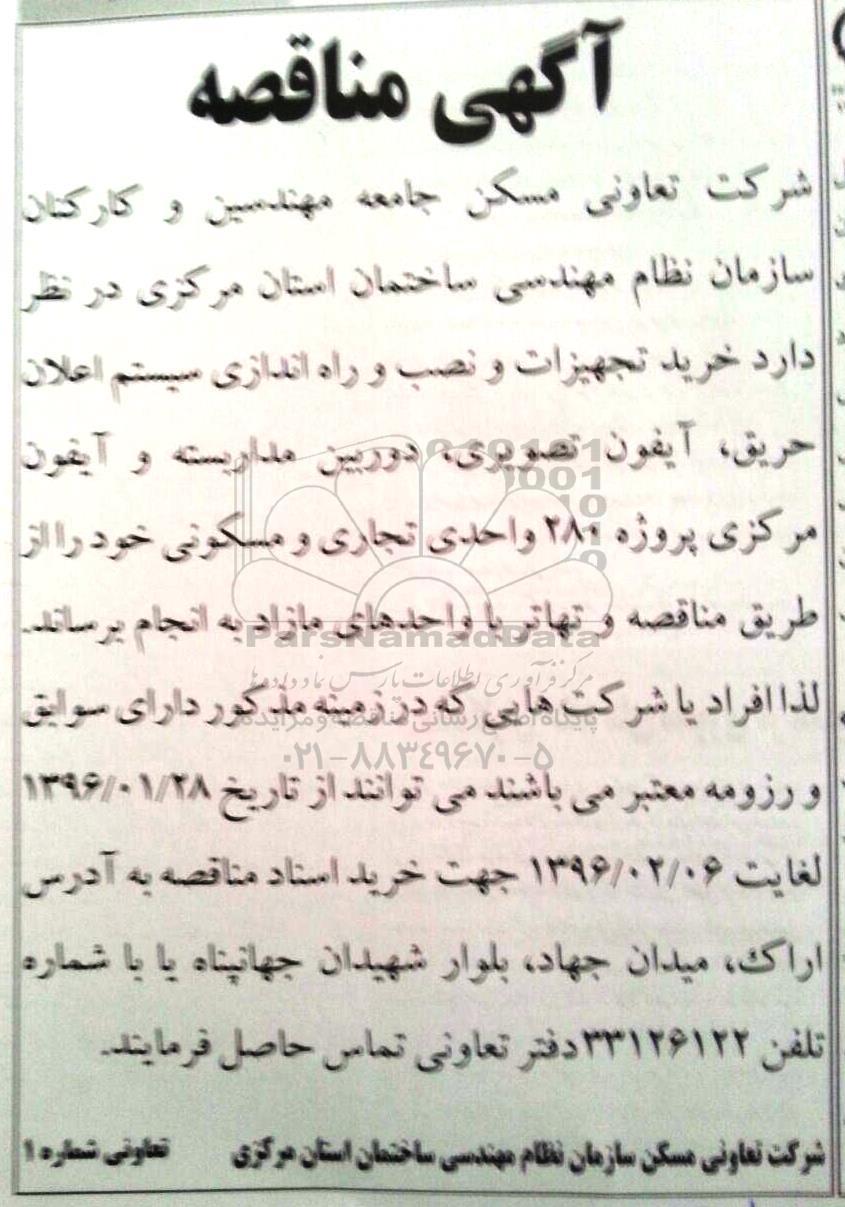 آگهی مناقصه
شرکت تعاونی مسکن جامعه مهندسین و کارکنان
سازمان نظام مهندسی ساختمان استان مرکزی در نظر
دارد خرید تجهیزات و نصب و راه اندازی سیستم اعلان
حریق، آیفون تصویری، دوربین مداربسته و آیفون
مرکزی پروژه ۲۸۰ واحدی تجاری و مسکونی خود را از
طریق مناقصه و تهاتر با واحدهای مازاد به انجام برساند.
ParsNamadData
مرکز فرآوری اطلاعات پارس نماد داده‌ها
لذا افراد یا شرکت هایی که در زمینه مذکور دارای سوابق
پایگاه اطلاع رسانی مناقصه و مزایده
۰۲۱-۸۸۳۴۹۶۷۰-۵
و رزومه معتبر می باشند می توانند از تاریخ ۱۳۹۶/۰۱/۲۸
لغایت ۱۳۹۶/۰۲/۰۶ جهت خرید اسناد مناقصه به آدرس
اراک، میدان جهاد، بلوار شهیدان جهانپناه یا با شماره
تلفن ۳۳۱۲۶۱۲۲ دفتر تعاونی تماس حاصل فرمایند.
شرکت تعاونی مسکن سازمان نظام مهندسی ساختمان استان مرکزی تعاونی شماره ۱